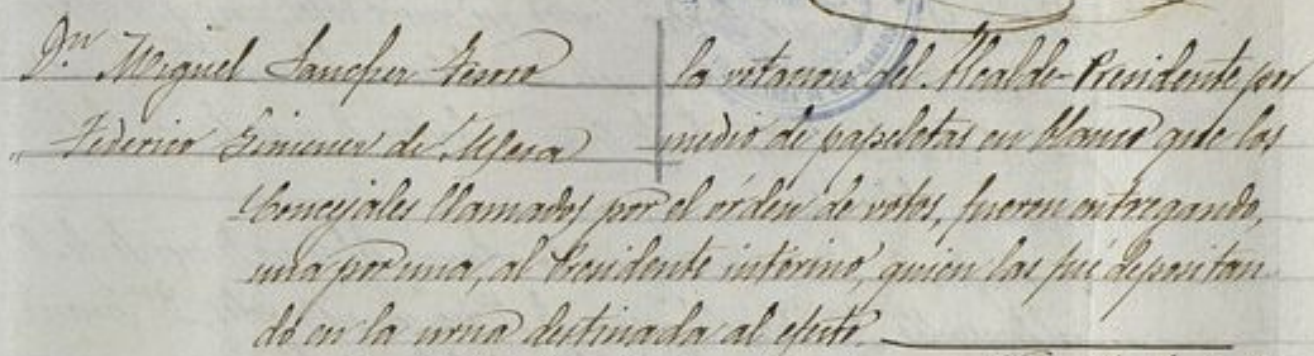 Dn. Miguel Sanchez
la votacion del Alcalde-Presidente por
„ Federico Gimenez de
medio de papeletas en blanco que los
Concejales llamados por el órden de votos, fueron entregando,
una por una, al Presidente interino, quien las fué depositan
do en la urna destinada al efecto.